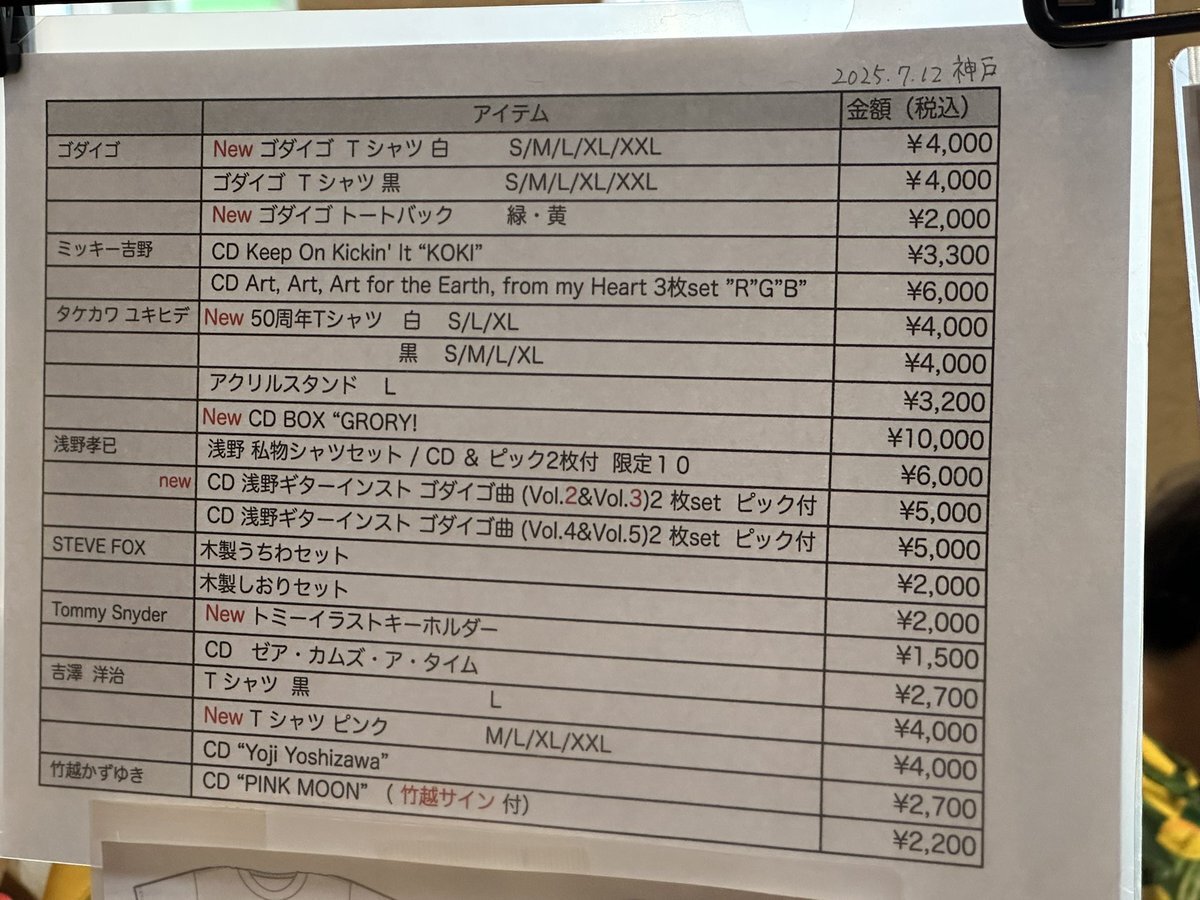 2025.7.12 神戸
アイテム 金額（税込）
ゴダイゴ New ゴダイゴ Tシャツ 白 S/M/L/XL/XXL ¥4,000
ゴダイゴ Tシャツ 黒 S/M/L/XL/XXL ¥4,000
New ゴダイゴ トートバック 緑・黄 ¥2,000
ミッキー吉野 CD Keep On Kickin' It “KOKI” ¥3,300
CD Art, Art, Art for the Earth, from my Heart 3枚set ”R”G”B” ¥6,000
タケカワ ユキヒデ New 50周年Tシャツ 白 S/L/XL ¥4,000
黒 S/M/L/XL ¥4,000
アクリルスタンド L ¥3,200
New CD BOX “GRORY! ¥10,000
浅野孝已 浅野 私物シャツセット / CD & ピック2枚付 限定１０ ¥6,000
new CD 浅野ギターインスト ゴダイゴ曲 (Vol.2&Vol.3)2 枚set ピック付 ¥5,000
CD 浅野ギターインスト ゴダイゴ曲 (Vol.4&Vol.5)2 枚set ピック付 ¥5,000
STEVE FOX 木製うちわセット ¥2,000
木製しおりセット ¥2,000
Tommy Snyder New トミーイラストキーホルダー ¥1,500
CD ゼア・カムズ・ア・タイム ¥2,700
吉澤 洋治 Tシャツ 黒 L ¥4,000
New Tシャツ ピンク M/L/XL/XXL ¥4,000
CD “Yoji Yoshizawa” ¥2,700
竹越かずゆき CD “PINK MOON” （ 竹越サイン 付） ¥2,200